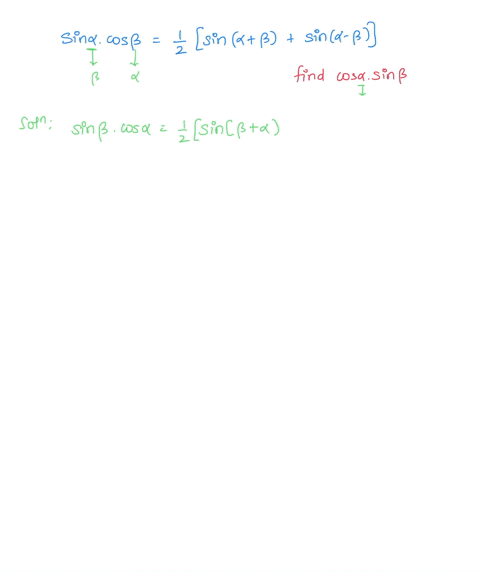 sinα.cosβ = 1/2 [sin(α+β) + sin(α-β)]
β α
find cosα.sinβ
Soln: sinβ.cosα = 1/2 [sin(β+α)